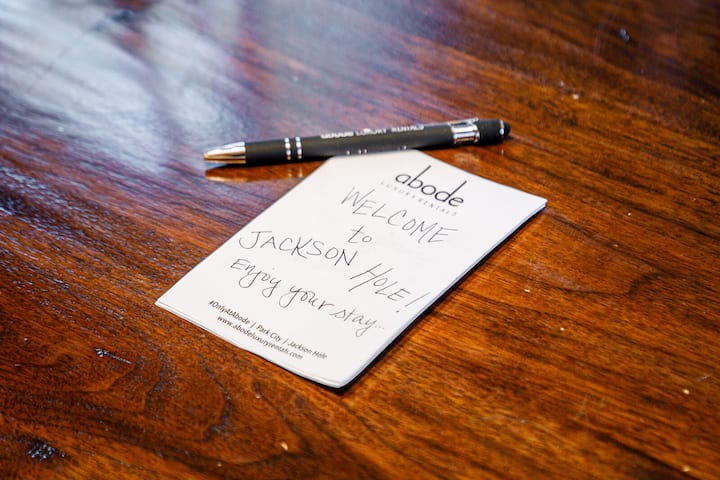 abode LUXURY RENTALS
abode
LUXURY RENTALS
WELCOME
to
JACKSON HOLE!
Enjoy your stay...
#OnlyAtAbode | Park City | Jackson Hole
www.abodeluxuryrentals.com